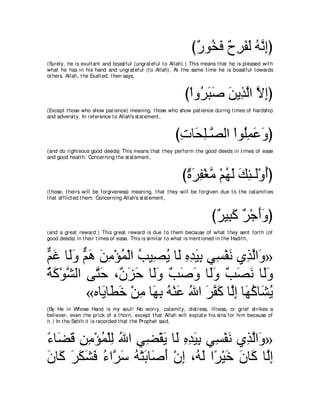 (إِنَّهُ لَفَرِحٌ فَخُورٌ)
(Surely, he is exultant and boastful (ungrateful to Allah).) This means that he is pleased with
what he has in his hand and ungrateful (to Allah). At the same time he is boastful towards
others. Allah, the Exalted, then says,
(إِلاَّ الَّذِينَ صَبَرُواْ)
(Except those who show patience) meaning, those who show patience during times of hardship
and adversity. In reference to Allah's statement,
(وَعَمِلُواْ الصَّـلِحَاتِ)
(and do righteous good deeds) This means that they perform the good deeds in times of ease
and good health. Concerning the statement,
(أُوْلَـئِكَ لَهُمْ مَّغْفِرَةٌ)
(those, theirs will be forgiveness) meaning, that they will be forgiven due to the calamities
that afflicted them. Concerning Allah's statement,
(وَأَجْرٌ كَبِيرٌ)
(and a great reward.) This great reward is due to them because of what they sent forth (of
good deeds) in their times of ease. This is similar to what is mentioned in the Hadith,
«وَالَّذِي نَفْسِي بِيَدِهِ لَا يُصِيبُ الْمُؤْمِنَ هَمٌّ وَلَا غَمٌّ
وَلَا نَصَبٌ وَلَا وَصَبٌ وَلَا حَزَنٌ، حَتَّى الشَّوْكَةُ
يُشَاكُهَا إِلَّا كَفَّرَ اللهُ عَنْهُ بِهَا مِنْ خَطَايَاه»
(By He in Whose Hand is my soul! No worry, calamity, distress, illness, or grief strikes a
believer, even the prick of a thorn, except that Allah will expiate his sins for him because of
it.) In the Sahih it is recorded that the Prophet said,
«وَالَّذِي نَفْسِي بِيَدِهِ لَا يَقْضِي اللهُ لِلْمُؤْمِنِ قَضَاءً
إِلَّا كَانَ خَيْرًا لَهُ، إِنْ أَصَابَتْهُ سَرَّاءُ فَشَكَرَ كَانَ